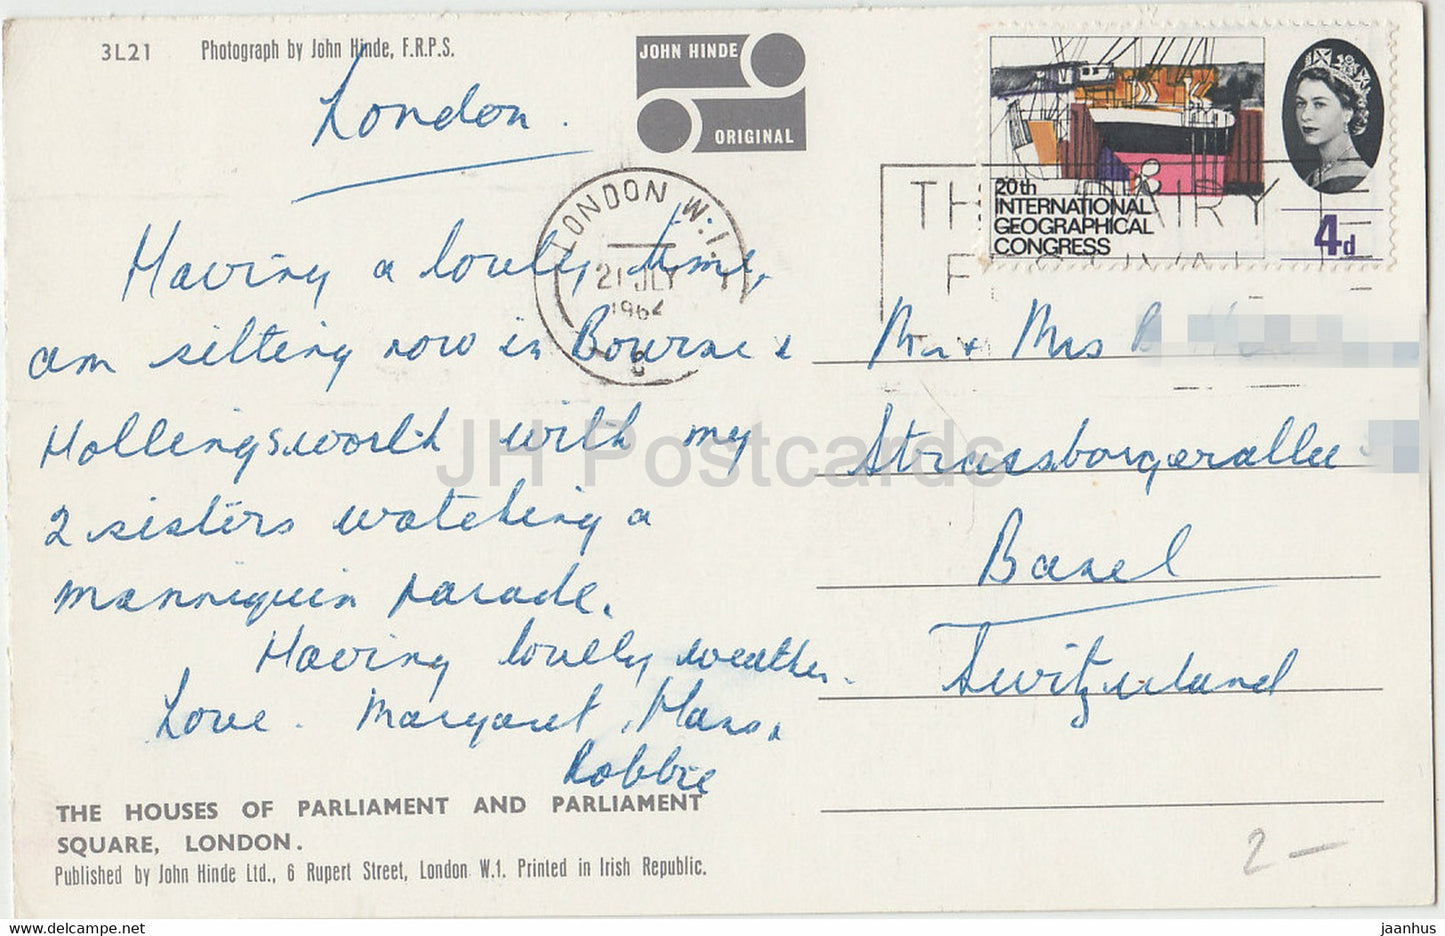 3L21 Photograph by John Hinde, F.R.P.S.
JOHN HINDE
ORIGINAL
London.
Having a lovely time,
am sitting now in Bourne &
Hollingsworth with my
2 sisters watching a
mannequin parade.
Having lovely weather.
Love. Margaret, Hans,
Robbie
THE HOUSES OF PARLIAMENT AND PARLIAMENT
SQUARE, LONDON.
Published by John Hinde Ltd., 6 Rupert Street, London W.1. Printed in Irish Republic.
LONDON W.1.
21 JLY
1964
20th
INTERNATIONAL
GEOGRAPHICAL
CONGRESS
4d
Mr & Mrs
Strassborgerallee
Basel
Switzerland
2 —
JH Postcards
hippostcard.com
jaanhus